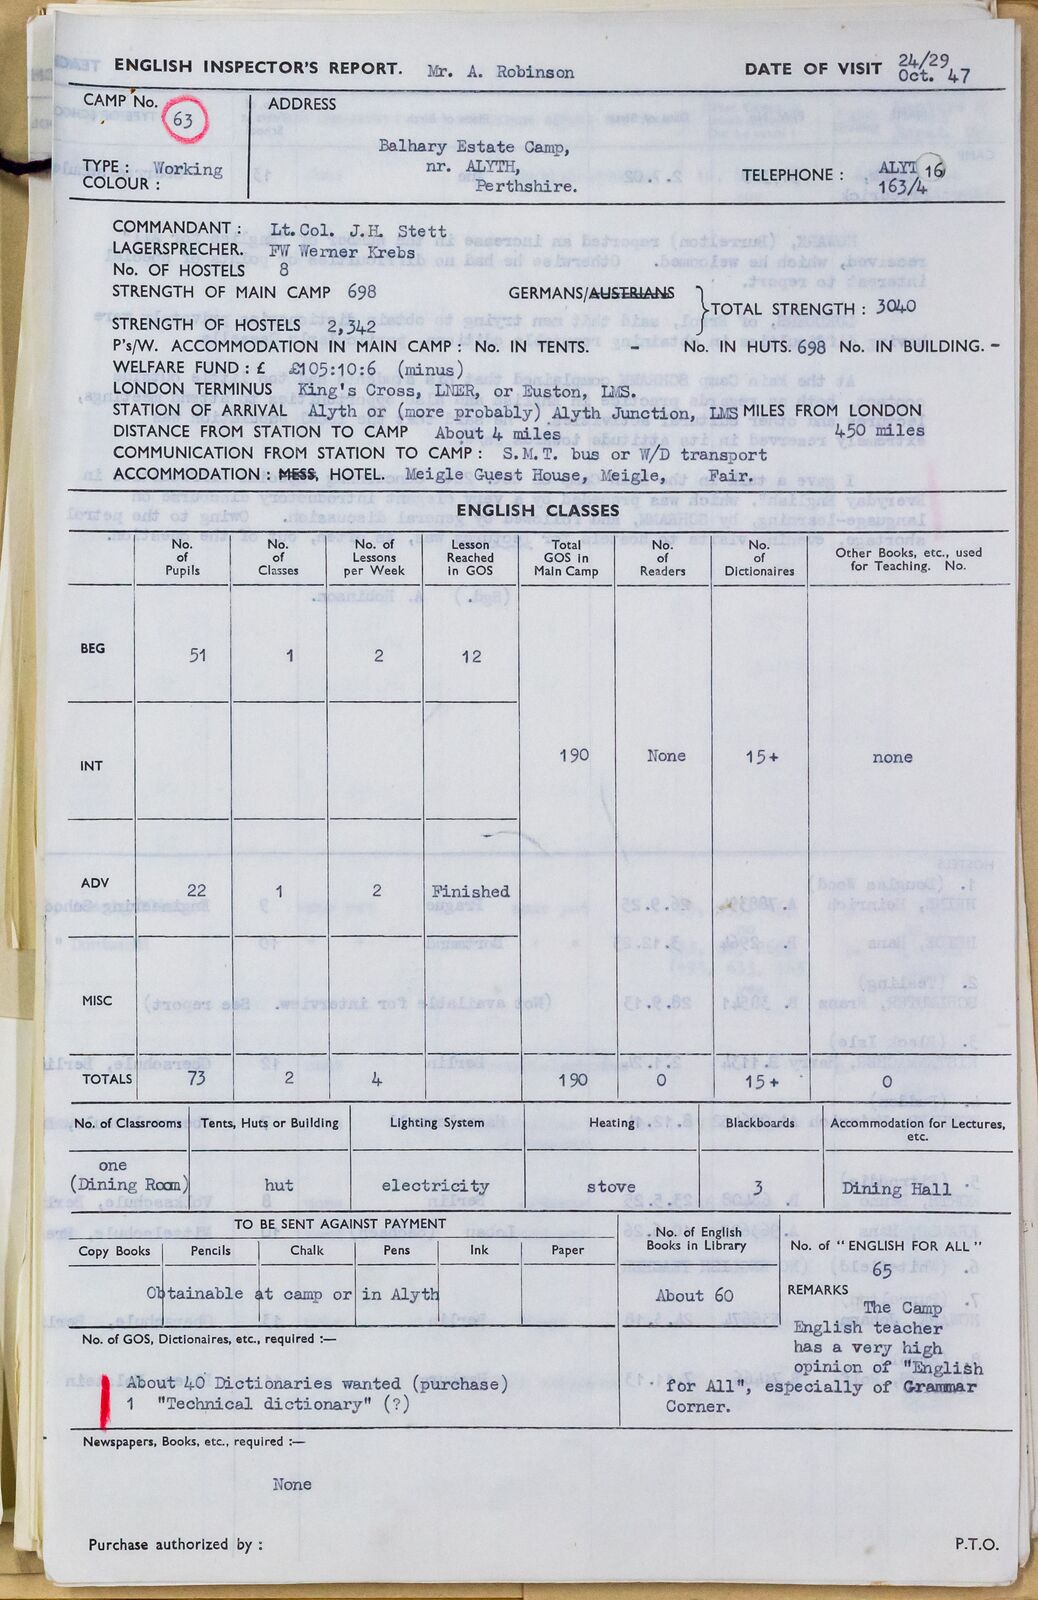 ENGLISH INSPECTOR'S REPORT. Mr. A. Robinson DATE OF VISIT 24/29 Oct. 47
CAMP No. 63 ADDRESS
Balhary Estate Camp,
TYPE : Working nr. ALYTH, TELEPHONE : ALYT 16
COLOUR : Perthshire. 163/4
COMMANDANT : Lt.Col. J.H. Stett
LAGERSPRECHER. FW Werner Krebs
No. OF HOSTELS 8
STRENGTH OF MAIN CAMP 698 GERMANS/AUSTRIANS
TOTAL STRENGTH : 3040
STRENGTH OF HOSTELS 2,342
P's/W. ACCOMMODATION IN MAIN CAMP : No. IN TENTS. - No. IN HUTS. 698 No. IN BUILDING. -
WELFARE FUND : £ £105:10:6 (minus)
LONDON TERMINUS King's Cross, LNER, or Euston, LMS.
STATION OF ARRIVAL Alyth or (more probably) Alyth Junction, LMS MILES FROM LONDON
DISTANCE FROM STATION TO CAMP About 4 miles 450 miles
COMMUNICATION FROM STATION TO CAMP : S.M.T. bus or W/D transport
ACCOMMODATION : MESS, HOTEL. Meigle Guest House, Meigle, Fair.
ENGLISH CLASSES
No. of Pupils No. of Classes No. of Lessons per Week Lesson Reached in GOS Total GOS in Main Camp No. of Readers No. of Dictionaires Other Books, etc., used for Teaching. No.
BEG 51 1 2 12
INT 190 None 15+ none
ADV 22 1 2 Finished
MISC
TOTALS 73 2 4 190 0 15+ 0
No. of Classrooms Tents, Huts or Building Lighting System Heating Blackboards Accommodation for Lectures, etc.
one
(Dining Room) hut electricity stove 3 Dining Hall
TO BE SENT AGAINST PAYMENT No. of English Books in Library No. of "ENGLISH FOR ALL"
Copy Books Pencils Chalk Pens Ink Paper
65
Obtainable at camp or in Alyth About 60 REMARKS
The Camp
English teacher
has a very high
opinion of "English
for All", especially of Grammar
Corner.
No. of GOS, Dictionaires, etc., required :—
About 40 Dictionaries wanted (purchase)
1 "Technical dictionary" (?)
Newspapers, Books, etc., required :—
None
Purchase authorized by : P.T.O.